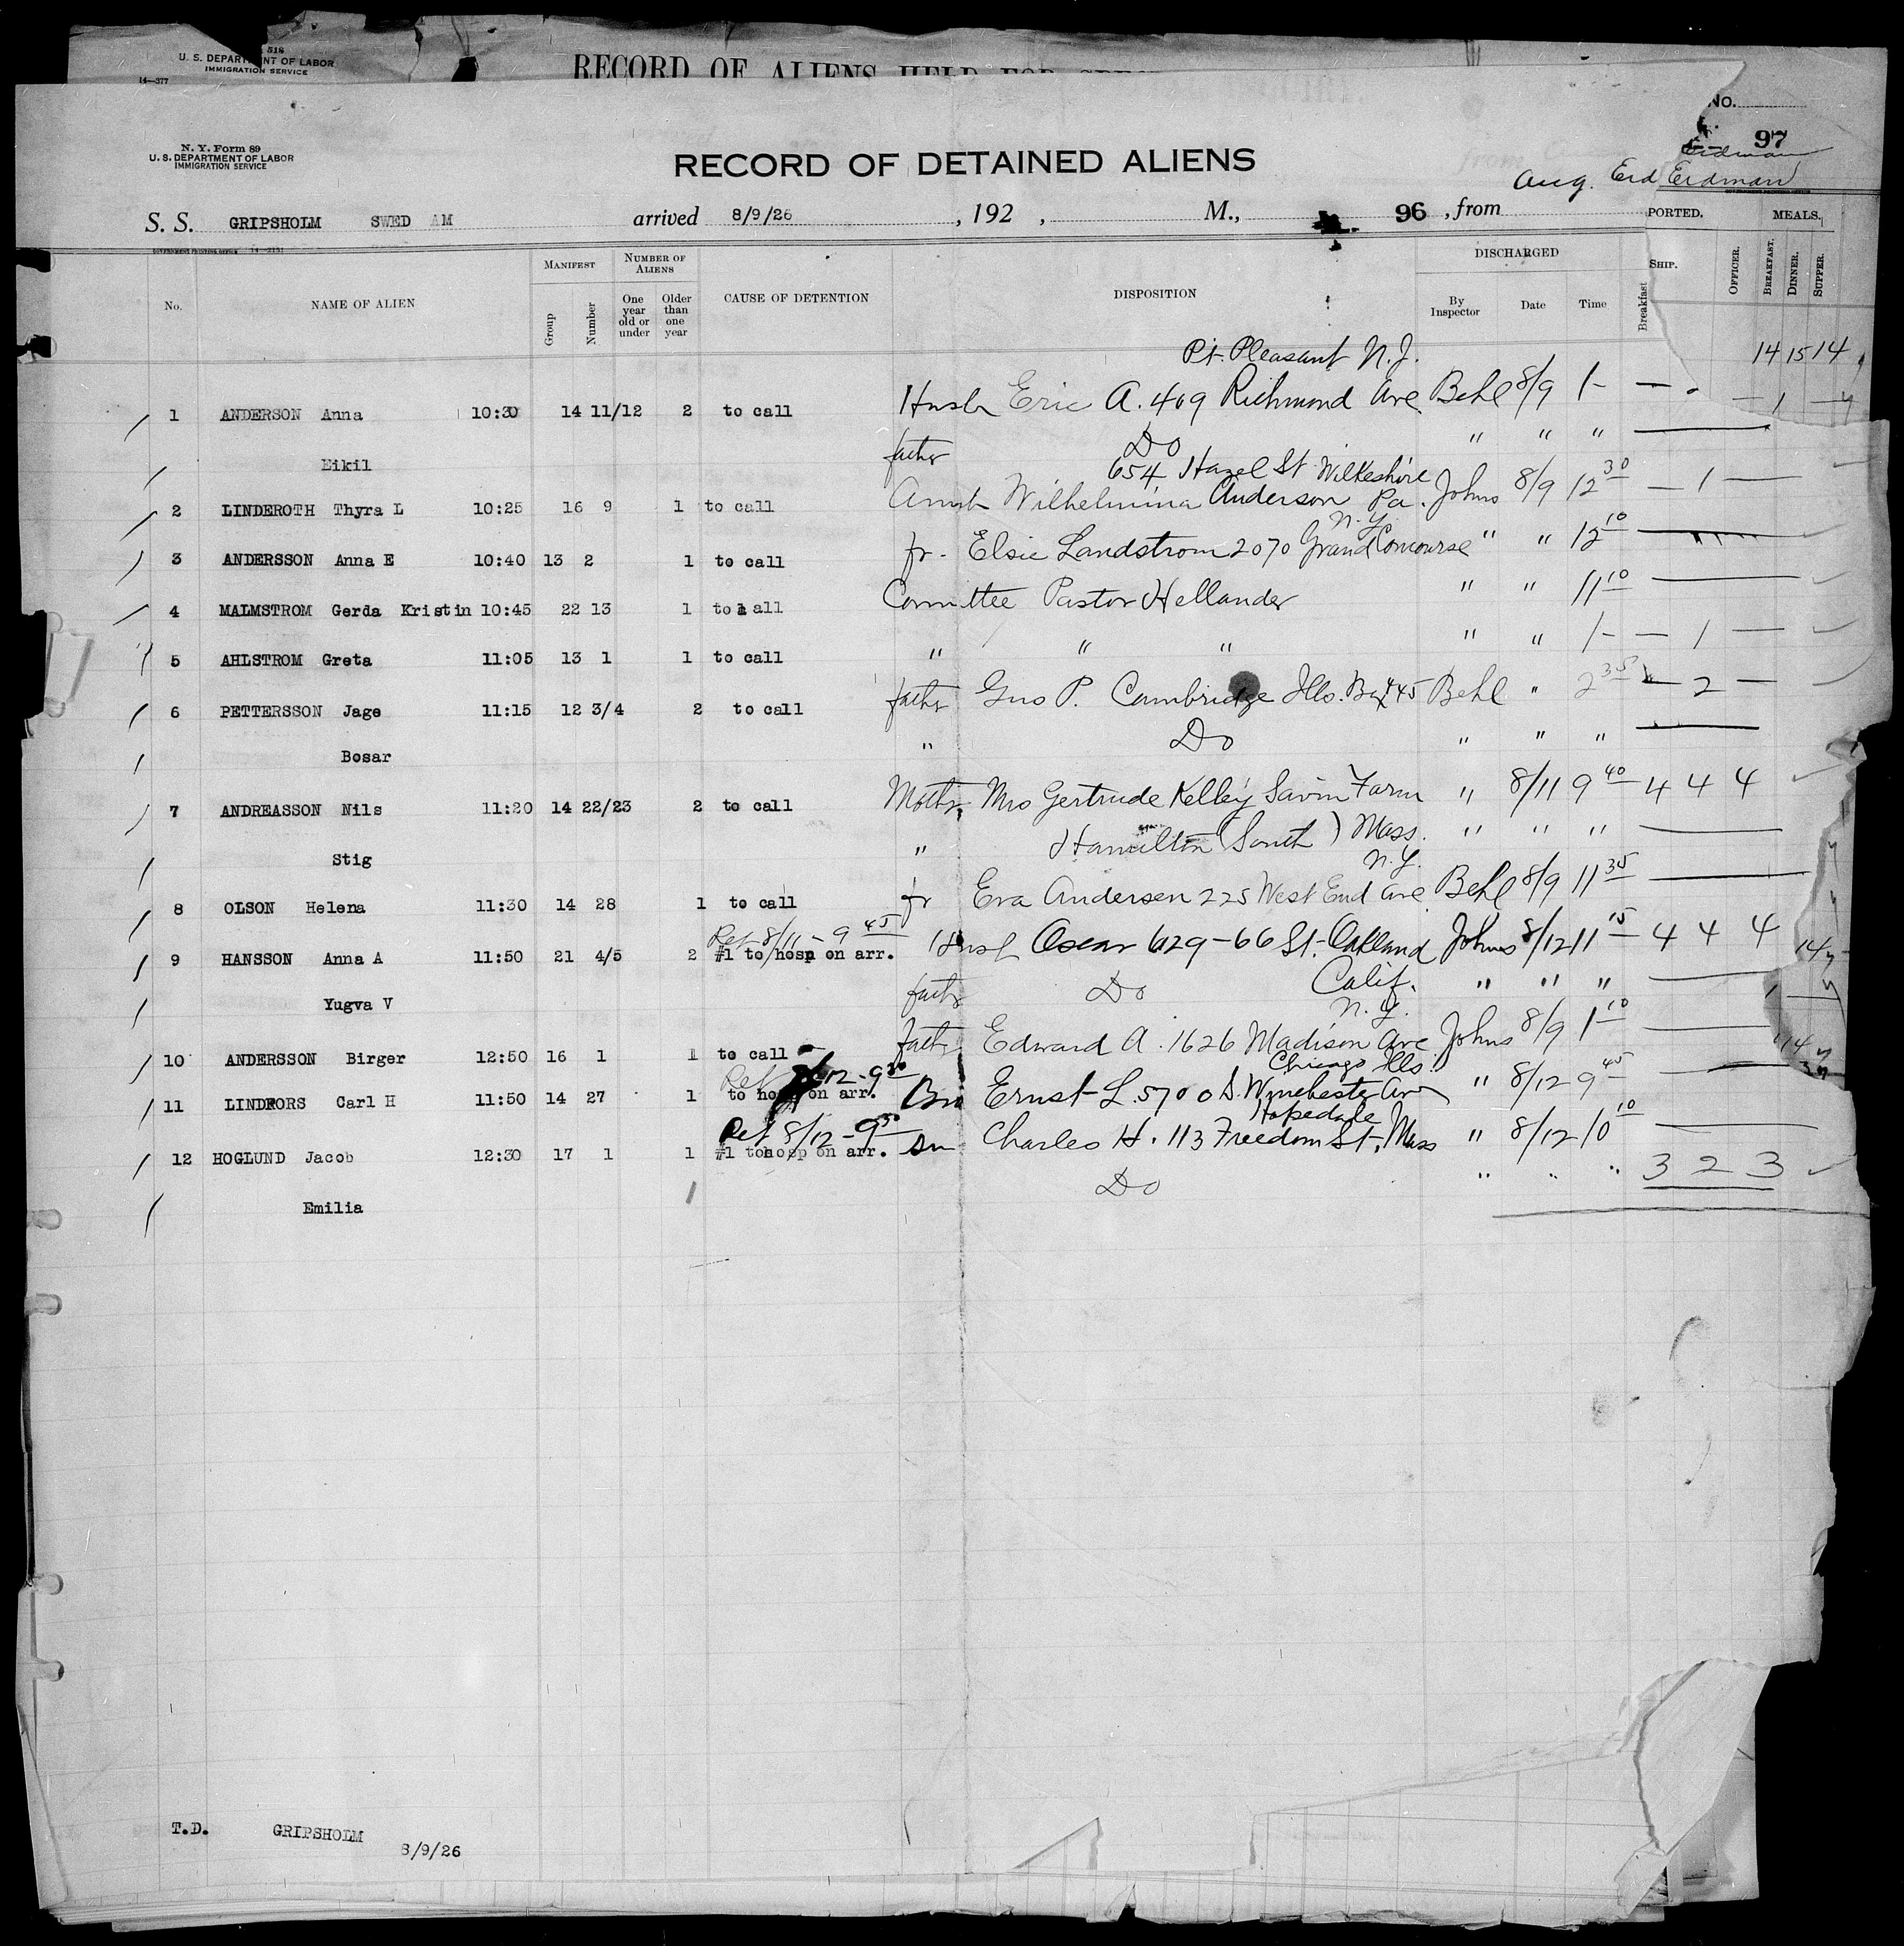 518
U. S. DEPARTMENT OF LABOR
IMMIGRATION SERVICE
14—377
RECORD OF ALIENS HELD FOR
No.
97
N. Y. Form 89
U. S. DEPARTMENT OF LABOR
IMMIGRATION SERVICE
RECORD OF DETAINED ALIENS
Aug. Erd Erdman
S. S. GRIPSHOLM SWED AM arrived 8/9/26, 192 , M., 96 , from
PORTED. MEALS.
GOVERNMENT PRINTING OFFICE
No. NAME OF ALIEN MANIFEST Group Number NUMBER OF ALIENS One year old or under Older than one year CAUSE OF DETENTION DISPOSITION DISCHARGED By Inspector Date Time Breakfast SHIP. OFFICER. BREAKFAST. DINNER. SUPPER.
14 15 14
Pt. Pleasant N.J.
1 ANDERSON Anna 10:30 14 11/12 2 to call Husb Eric A. 409 Richmond Ave Behl 8/9 1- — 1 —
Eikil father Do " " "
654 Hazel St Wilkeshire
2 LINDEROTH Thyra L 10:25 16 9 1 to call Aunt Wilhelmina Anderson Pa. Johns 8/9 12 30 — 1 —
N.Y.
3 ANDERSSON Anna E 10:40 13 2 1 to call fr. Elsie Landstrom 2070 Grand Concourse " " 12 10
4 MALMSTROM Gerda Kristin 10:45 22 13 1 to all Committee Pastor Hellander " " 11 10
5 AHLSTROM Greta 11:05 13 1 1 to call " " " " " 1- — 1 —
6 PETTERSSON Jage 11:15 12 3/4 2 to call father Gus P. Cambridge Ills. Box 45 Behl " 2 35 — 2 —
Bosar " Do " " "
7 ANDREASSON Nils 11:20 14 22/23 2 to call Mother Mrs Gertrude Kelley Savin Farm " 8/11 9 40 4 4 4
Stig " Hamilton (South) Mass. " " "
N.Y.
8 OLSON Helena 11:30 14 28 1 to call fr Eva Andersen 225 West End Ave Behl 8/9 11 35
Ret 8/11 - 9 45
9 HANSSON Anna A 11:50 21 4/5 2 #1 to hosp on arr. Husb Oscar 629-66 St. Oakland Johns 8/12 11 15 4 4 4
Yugva V father Do Calif. " " "
N.Y.
10 ANDERSSON Birger 12:50 16 1 1 to call father Edward A. 1626 Madison Ave Johns 8/9 1 10
Ret 8/12 - 9 30 Chicago Ills.
11 LINDFORS Carl H 11:50 14 27 1 to hosp on arr. Bro Ernst L. 5700 S. Winchester Av " 8/12 9 45
Ret 8/12 - 9 50 Hopedale
12 HOGLUND Jacob 12:30 17 1 1 #1 to hosp on arr. Son Charles H. 113 Freedom St, Mass " 8/12 10 10
Emilia 1 Do " " " 3 2 3
T.D. GRIPSHOLM
8/9/26